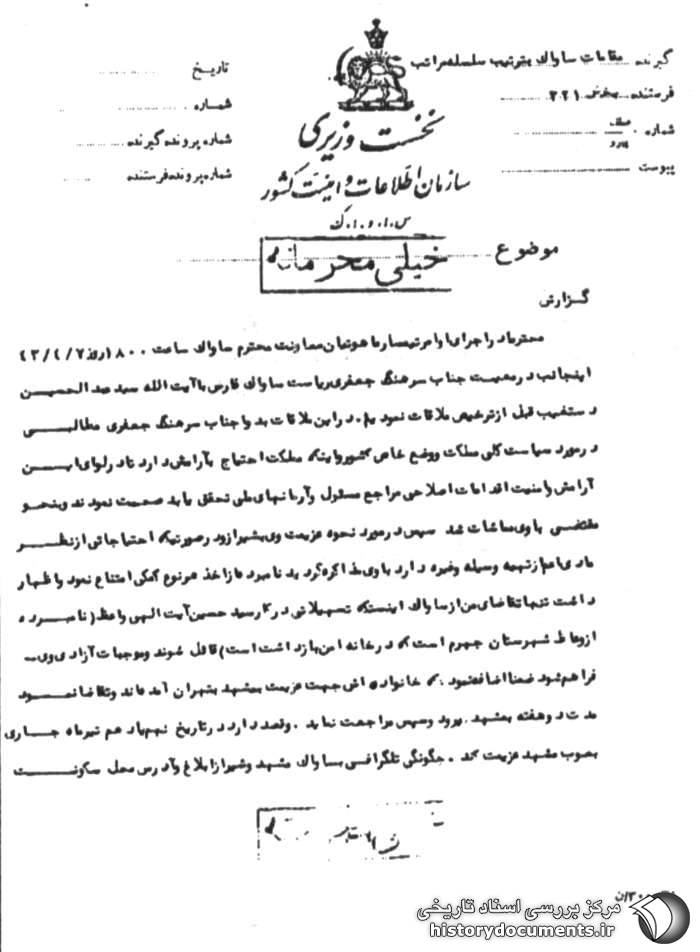 گیرنده مقامات ساواك بترتیب سلسله مراتب
فرستنده بخش ۳۲۱
شماره
پیوست
تاریخ
شماره
شماره پرونده گیرنده
شماره پرونده فرستنده
نخست وزیری
سازمان اطلاعات و امنیت کشور
س.ا.و.ا.ك
موضوع خیلی محرمانه
گزارش
محترماً در اجرای اوامر تیمسار ماهوتیان معاونت محترم ساواك ساعت ۸۰۰ (روز ۴۳/۴/۷
اینجانب در معیت جناب سرهنگ جعفری ریاست ساواك فارس با آیت الله سید عبدالحسین
دستغیب قبل از ترخیص ملاقات نمودیم. در این ملاقات بدواً جناب سرهنگ جعفری مطالبی
در مورد سیاست کلی مملکت و وضع خاص کشور و اینکه مملکت احتیاج بآرامش دارد تا در لوای این
آرامش و امنیت اقدامات اصلاحی مراجع مسئول و آرمانهای ملی تحقق یابد صحبت نمودند و بنحو
مقتضی با وی مماشات شد سپس در مورد نحوه عزیمت وی بشیراز و در صورتیکه احتیاجاتی از نظر
مادی اعم از تهیه وسیله و غیره دارد با وی مذاکره گردید نامبرده از اخذ هر نوع کمکی امتناع نمود و اظهار
داشت تنها تقاضای من از ساواك اینستکه تسهیلاتی در کار سید حسین آیت الهی واعظ (نامبرده
از وعاظ شهرستان جهرم است که در خانه امن بازداشت است) قائل شوند و موجبات آزادی وی
فراهم شود ضمناً اضافه نمود که خانواده اش جهت عزیمت بمشهد بتهران آمده اند و تقاضا نمود
مدت دو هفته بمشهد برود و سپس مراجعت نماید. و قصد دارد در تاریخ نهم یا دهم تیرماه جاری
بصوب مشهد عزیمت کند. چگونگی تلگرافی بساواك مشهد و شیراز ابلاغ و آدرس محل سکونت
مرکز بررسی اسناد تاریخی
historydocuments.ir